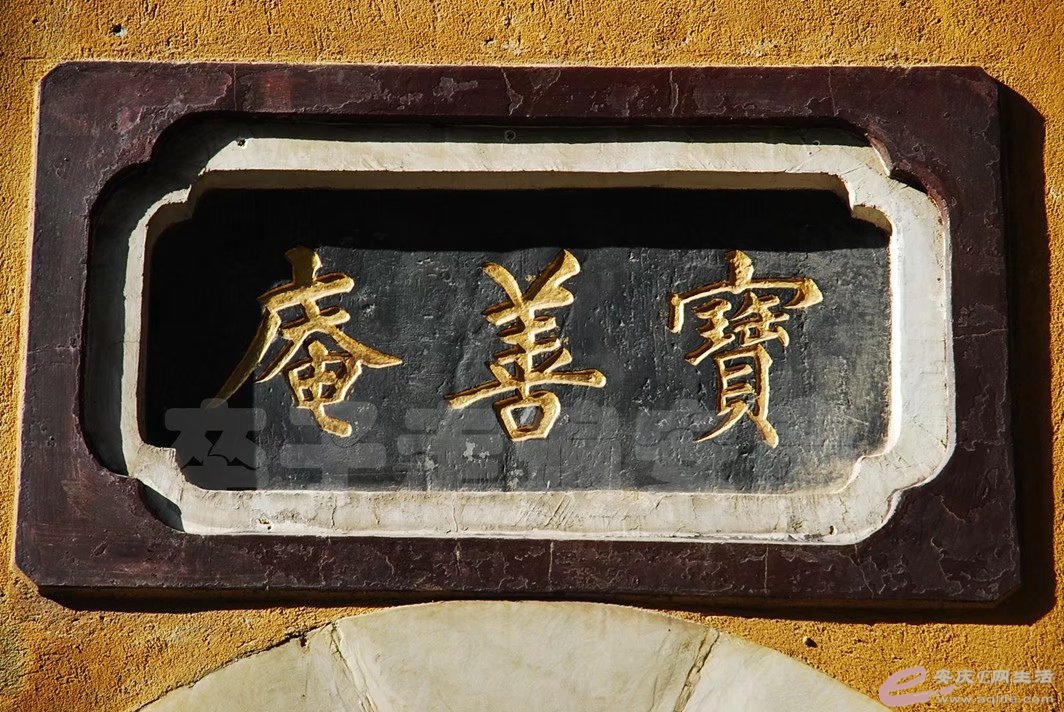 寶善庵
安庆E网生活
www.aqlife.com